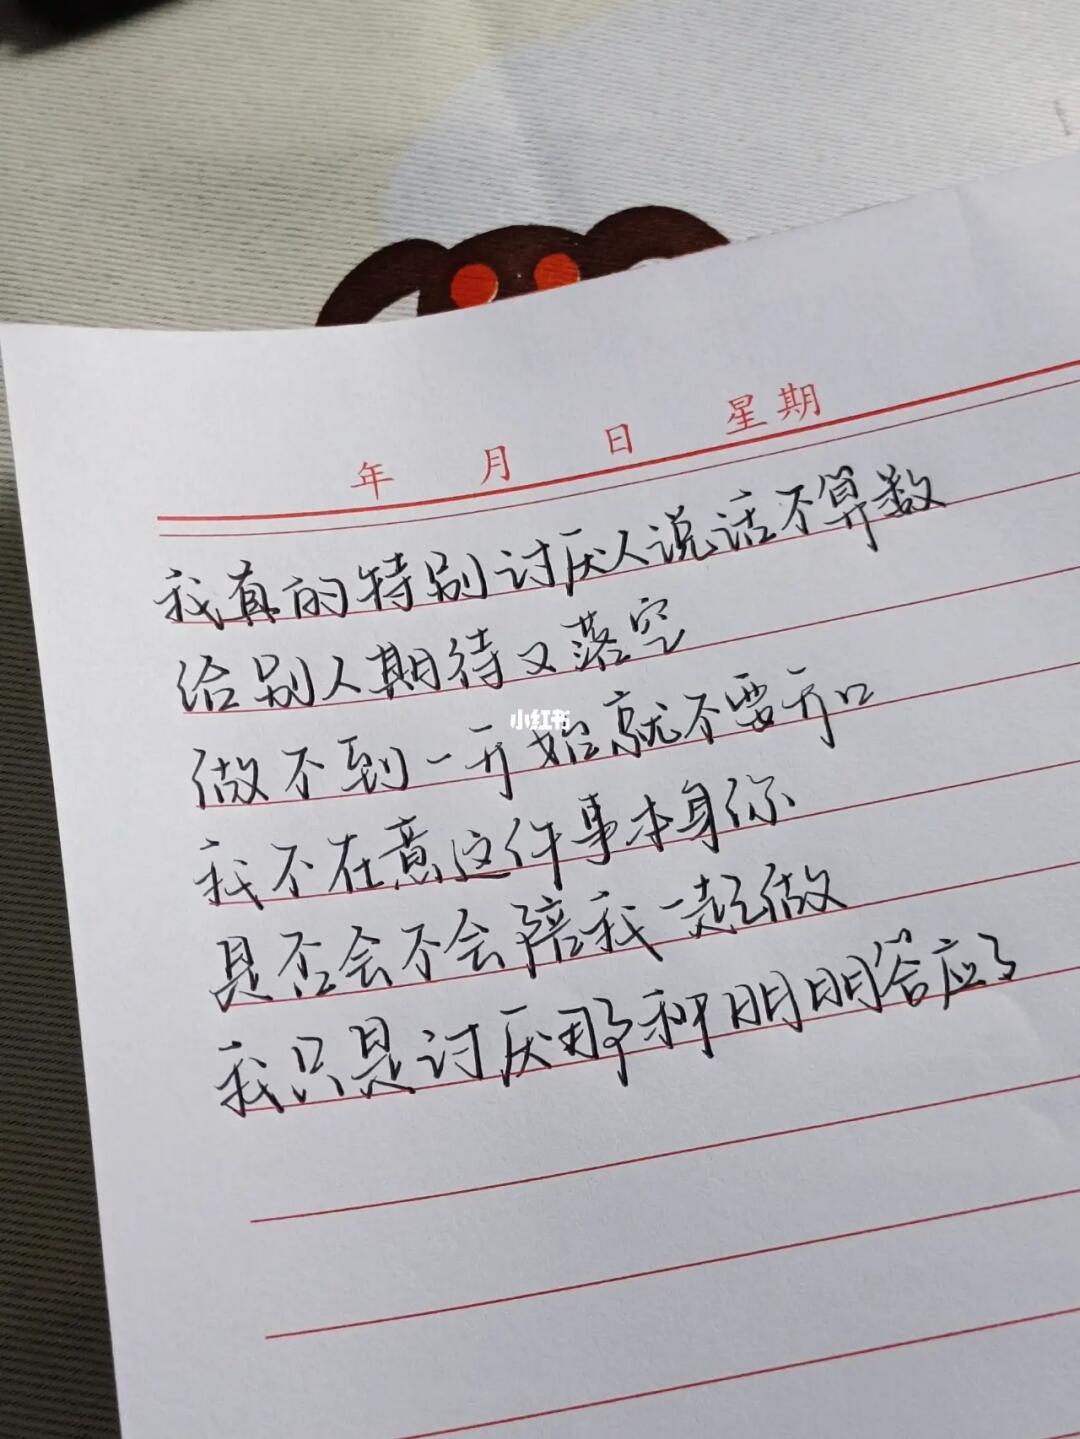 年 月 日 星期
我真的特别讨厌人说话不算数
给别人期待又落空
小红书
做不到一开始就不要开口
我不在意这件事本身你
是否会不会陪我一起做
我只是讨厌那种明明答应了